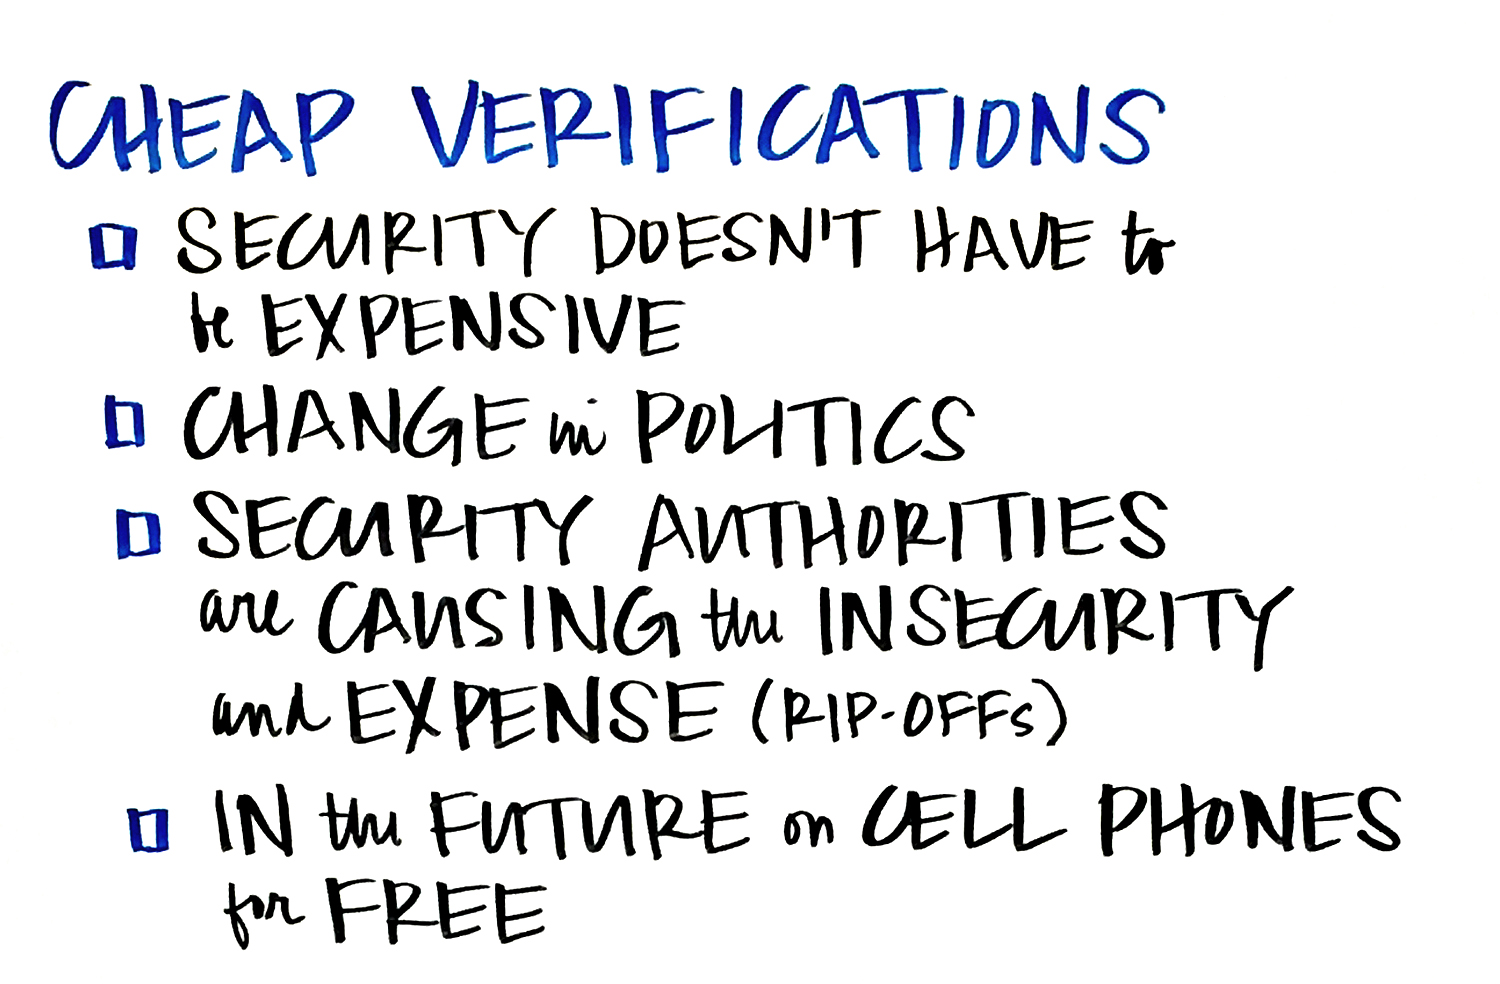 CHEAP VERIFICATIONS
SECURITY DOESN'T HAVE to
be EXPENSIVE
CHANGE in POLITICS
SECURITY AUTHORITIES
are CAUSING the INSECURITY
and EXPENSE (RIP-OFFs)
IN the FUTURE on CELL PHONES
for FREE